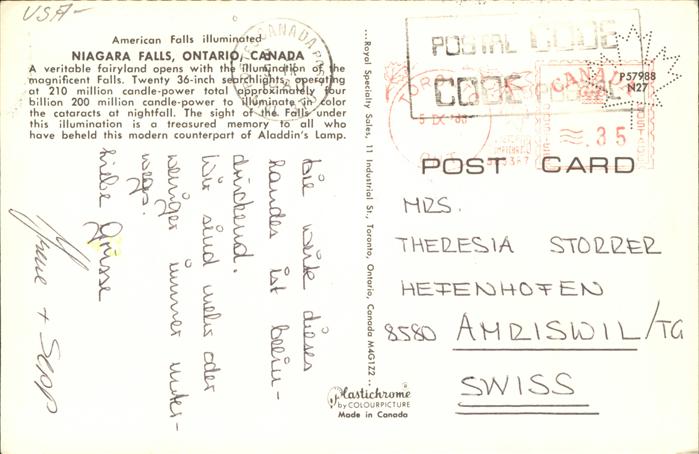 USA-
American Falls illuminated
NIAGARA FALLS, ONTARIO, CANADA
A veritable fairyland opens with the illumination of the
magnificent Falls. Twenty 36-inch searchlights, operating
at 210 million candle-power total approximately four
billion 200 million candle-power to illuminate in color
the cataracts at nightfall. The sight of the Falls under
this illumination is a treasured memory to all who
have beheld this modern counterpart of Aladdin's Lamp.
Die weite dieses
Landes ist beein-
druckend.
Wir sind mehr oder
weniger immer unter-
wegs.
Liebe Grüsse
Yrene + Sepp
...Royal Specialty Sales, 11 Industrial St., Toronto, Ontario, Canada M4G1Z2...
Plastichrome
by COLOURPICTURE
Made in Canada
CANADA
POSTAL CODE
CODE POSTAL
CANADA
.35
P57988
N27
POST CARD
MRS.
THERESIA STORRER
HEFENHOFEN
8580 AMRISWIL/TG
SWISS